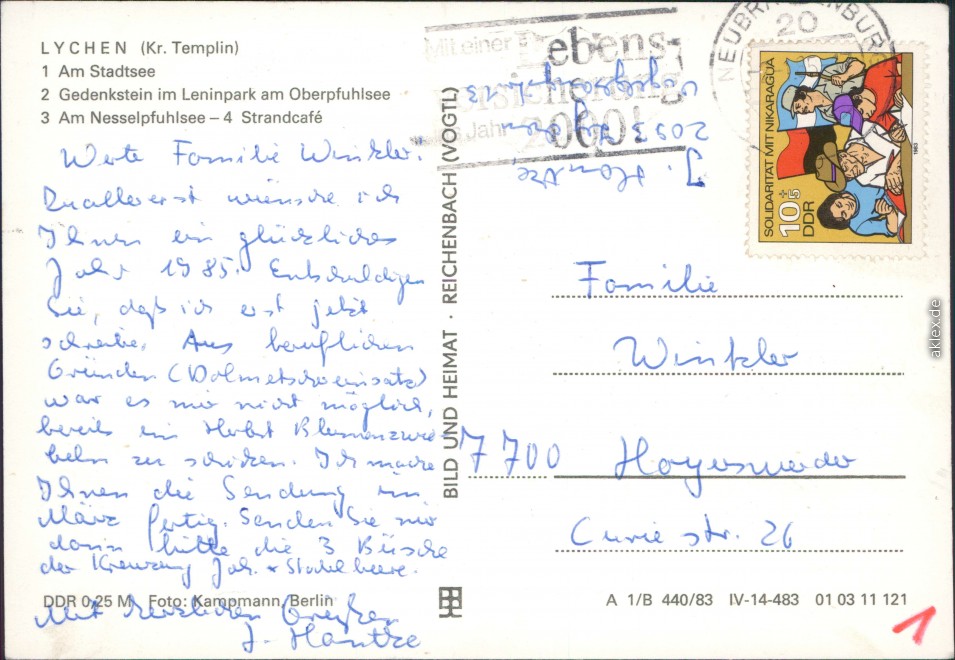 LYCHEN (Kr. Templin)
1 Am Stadtsee
2 Gedenkstein im Leninpark am Oberpfuhlsee
3 Am Nesselpfuhlsee – 4 Strandcafé
Werte Familie Winkler.
Zuallererst wünsche ich
Ihnen ein glückliches
Jahr 1985. Entschuldigen
Sie, daß ich erst jetzt
schreibe. Aus beruflichen
Gründen (Dolmetschereinsatz)
war es mir nicht möglich,
bereits im Herbst Blumenzwie
beln zu schicken. Ich mache
Ihnen die Sendung im
März fertig. Senden Sie mir
dann bitte die 3 Büsche
der Kreuzung Joh. + Stachelbeere.
Mit herzlichen Grüßen
J. Hantke
DDR 0,25 M Foto: Kampmann, Berlin
BILD UND HEIMAT · REICHENBACH (VOGTL)
Mit einer
ebens-
sicherung
ins Jahr 2000!
J. Hantke
2053
NEUBRANDENBURG
20
SOLIDARITÄT MIT NIKARAGUA
10+5
DDR
1983
Familie
Winkler
7700 Hoyerswerda
Curiestr. 26
A 1/B 440/83 IV-14-483 01 03 11 121
1
aklex.de